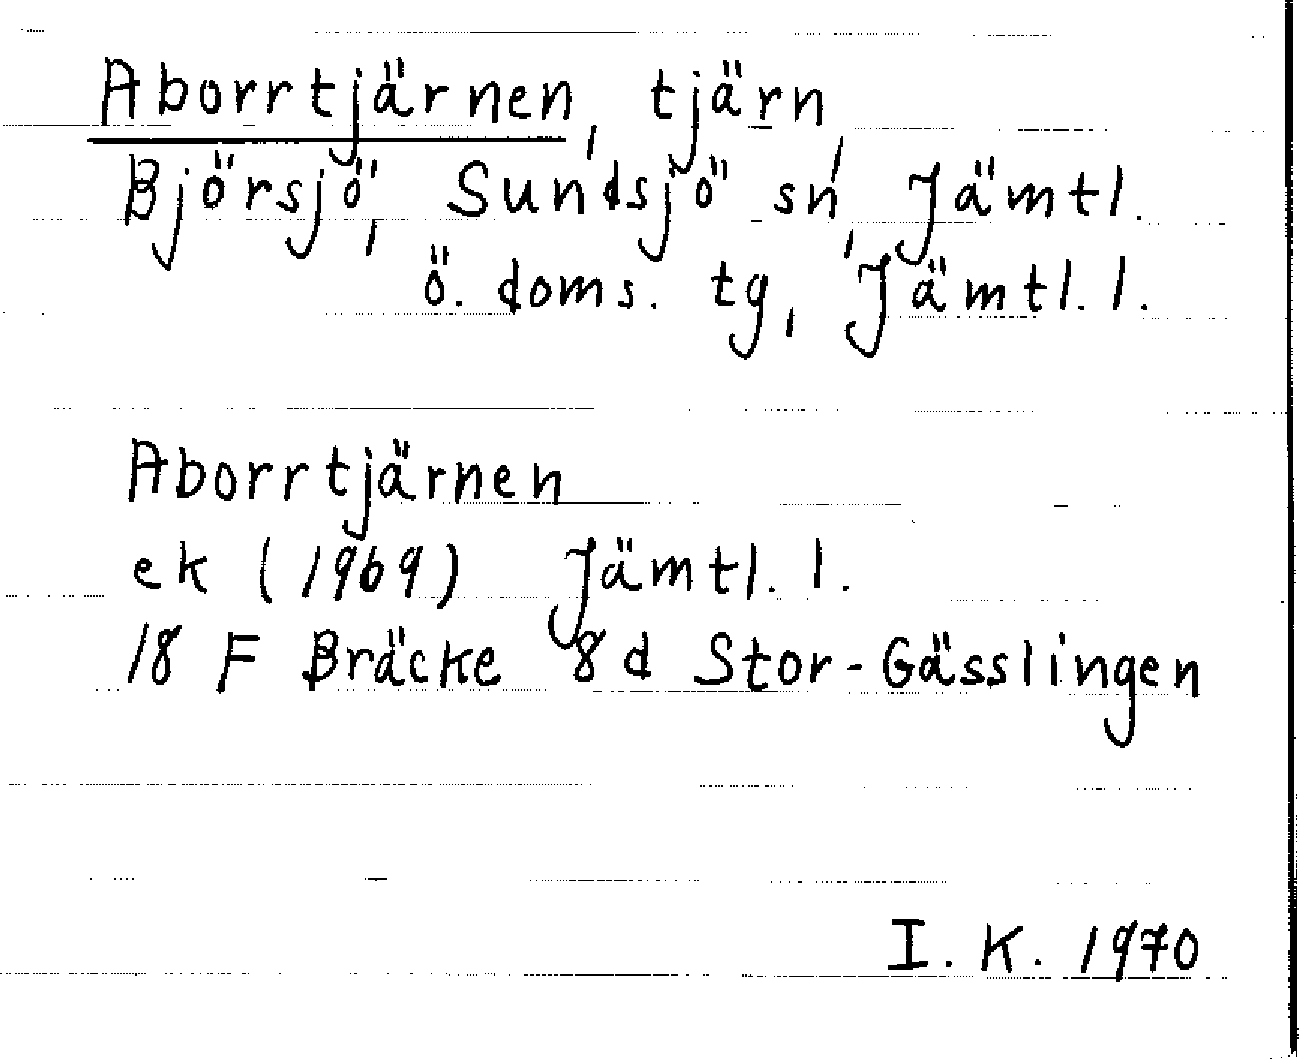 Aborrtjärnen, tjärn,
Björsjö, Sundsjö sn, Jämtl.
ö. doms. tg, Jämtl. l.
Aborrtjärnen
ek (1969) Jämtl. l.
18 F Bräcke 8 d Stor-Gässlingen
I. K. 1970